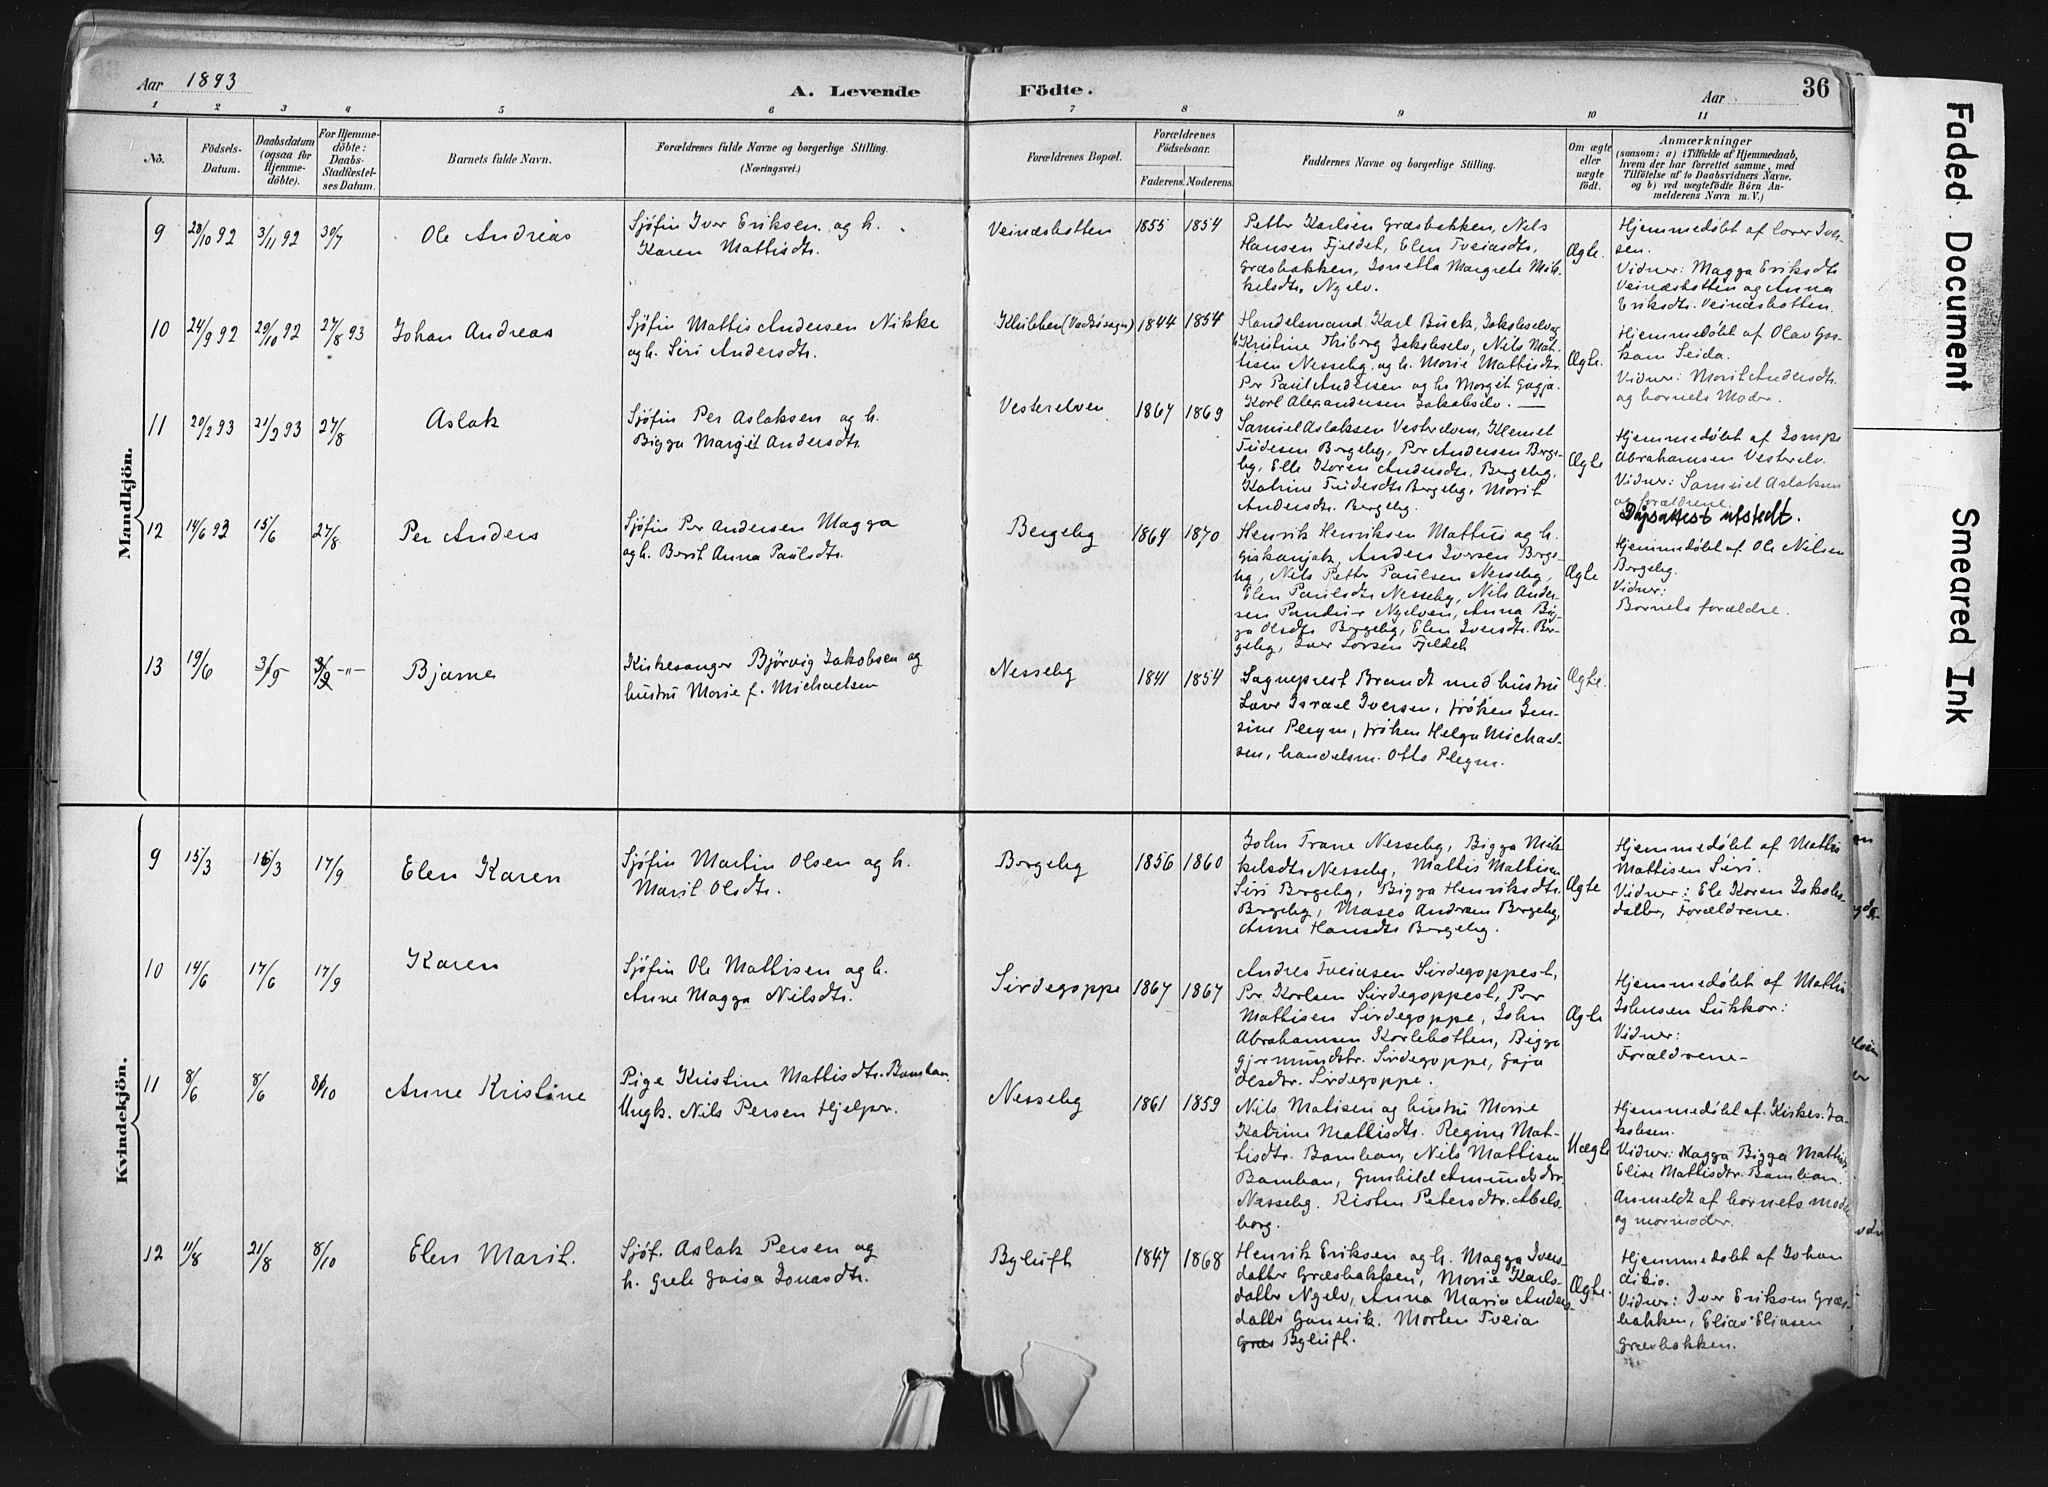 Aar 1893
A. Levende Födte.
Aar
36
1 2 3 4 5 6 7 8 9 10 11
No.
Födsels-
Datum.
Daabsdatum
(ogsaa for
Hjemme-
döbte).
For Hjemme-
döbte:
Daabs-
Stadfæstel-
ses Datum.
Barnets fulde Navn.
Forældrenes fulde Navne og borgerlige Stilling.
(Næringsvei.)
Forældrenes Bopæl.
Forældrenes
Födselsaar.
Faderens. Moderens.
Faddernes Navne og borgerlige Stilling.
Om ægte
eller
uægte
födt.
Anmærkninger
(saasom: a) i Tilfælde af Hjemmedaab,
hvem der har forrettet samme, med
Tilföielse af to Daabsvidners Navne,
og b) ved uægtefödte Börn An-
melderens Navn m. V.)
Mandkjön.
9 28/10 92 3/11 92 30/7
Ole Andreas
Sjöfin Iver Eriksen og h.
Karen Mattisdtr.
Veinæsbotten
1855 1854
Petter Karlsen Græsbakken, Nils
Hansen Fjeldst, Elen Tveiasdtr,
Græsbakken, Jonetta Margrete Mik-
kelsdtr, Nyelv.
Ægte.
Hjemmedøbt af Iver-
sen.
Vidner: Magga Eriksdtr
Veinæsbotten og Anna
Eriksdtr. Veinæsbotten.
10 24/9 92 29/10 92 27/8 93
Johan Andreas
Sjöfin Mattis Andersen Nikke
og h. Siri Andersdtr.
(Vadsösogn)
1844 1854
Handelsmand Karl Buck, Jakobselv og
h. Kristine Friborg Jakobselv, Nils Mat-
tisen Nesseby, og h. Marie Mattisdtr.
Per Paul Andersen og h. Margit Gagja.
Karl Alexandersen Jakobselv. —
Ægte.
Hjemmedøbt af Olav
Seida.
Vidner: Marit Andersdtr.
og barnets Moder.
11 20/2 93 21/2 93 27/8
Aslak
Sjöfin Per Aslaksen og h.
Bigga Margit Andersdtr.
Vesterelven
1867 1869
Samuel Aslaksen Vesterelven, Klemet
Fudesen Bergeby, Per Andersen Berge-
by, Elle Karen Andersdtr. Bergeby,
Katrine Fudesdtr. Bergeby, Marit
Andersdtr. Bergeby.
Ægte
Hjemmedøbt af Jompe
Abrahamsen Vesterelv.
Vidner: Samuel Aslaksen
og forældrene.
Dåpsattest utstedt.
12 14/6 93 15/6 27/8
Per Anders
Sjöfin Per Andersen Magga
og h. Berit Anna Paulsdtr.
Bergeby
1864 1870
Henrik Henriksen Mattus og h.
Giskanjok, Anders Iversen Berge-
by, Nils Petter Paulsen Nesseby,
Elen Paulsdtr. Nesseby, Nils Ander-
sen Nyelven, Anna Big-
ga Olsdtr. Bergeby, Elen Iversdtr. Ber-
geby, Iver Larsen Fjeldch
Ægte
Hjemmedøbt af Ole Nilsen
Bergeby.
Vidner:
Barnets forældre.
13 19/6 3/9 3/9 -"-
Bjarne
Kirkesanger Björvig Jakobsen og
hustru Marie f. Michaelsen
Nesseby
1841 1854
Sogneprest Brandt med hustru
Israel Iversen, fröken Jen-
sine Pleym, fröken Helga Michael-
sen, handelsm. Otto Pleym.
Ægte.
Kvindekjön.
9 15/3 16/3 17/9
Elen Karen
Sjöfin Martin Olsen og h.
Marit Olsdtr.
Bergeby
1856 1860
John Trane Nesseby, Bigga Mik-
kelsdtr Nesseby, Mattis Mattisen
Siri Bergeby, Bigga Henriksdtr.
Bergeby, Mases Andersen Bergeby,
Anne Hansdtr Bergeby.
Ægte
Hjemmedøbt af Mattis
Mattisen Siri.
Vidner: Ele Karen Jakobs-
datter, Forældrene.
10 14/6 17/6 17/9
Karen
Sjöfin Ole Mattisen og h.
Anne Magga Nilsdtr.
Sirdegoppe
1867 1867
Andres Tveiasen Sirdegoppest,
Per Karlsen Sirdegoppest, Per
Mattisen Sirdegoppe, John
Abrahamsen Karlebotten, Bigga
Gjermundsdtr. Sirdegoppe, Gaja
Olsdtr. Sirdegoppe.
Ægte
Hjemmedøbt af Mattis
Johnsen Lukkar:
Vidner:
Forældrene-
11 8/6 8/6 8/10
Anne Kristine
Pige Kristine Mattisdtr. Bamban.
Ungk. Nils Persen Hjelper.
Nesseby
1861 1859
Nils Matisen og hustru Marie
Katrine Mattisdtr. Regine Mat-
tisdtr. Bamban, Nils Mattisen
Bamban, Gunhild Amundsdtr.
Nesseby. Risten Petersdtr. Abels-
borg.
Uægte
Hjemmedøbt af Kirkes. Ja-
kobsen.
Vidner: Magga Bigga Mattisdtr.
Elise Mattisdtr. Bamban.
Anmeldt af barnets moder
og mormoder.
12 11/8 21/8 8/10
Elen Marit.
Sjöf. Aslak Persen og
h. Grete Gaisa Jonasdtr.
Byluft
1847 1868
Henrik Eriksen og h. Magga Ivers-
datter Græsbakken, Marie Karls-
datter Nyelv, Anna Maria Anders-
datter Gannik. Morten Tveia
Græs Byluft.
Ægte.
Hjemmedøbt af Johan
dikio.
Vidner: Iver Eriksen Græs-
bakken, Elias Eliasen
Græsbakken.
Faded Document
Smeared Ink